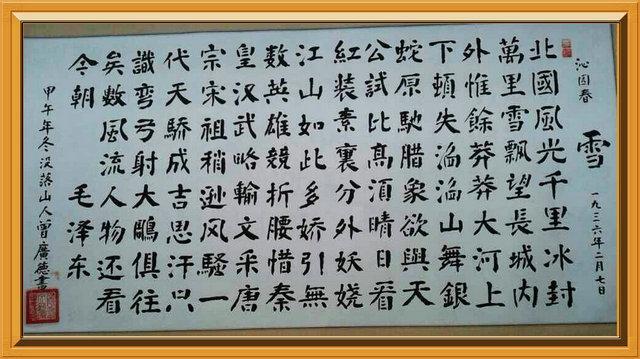 沁园春
雪
一九三六年二月七日
北國風光千里冰封
萬里雪飄望長城内
外惟餘莽莽大河上
下頓失滔滔山舞銀
蛇原馳腊象欲與天
公試比高湏晴日看
紅装素裹分外妖娆
江山如此多娇引無
数英雄競折腰惜秦
皇汉武略輸文采唐
宗宋祖稍逊风騷一
代天驕成吉思汗只
識弯弓射大鵰俱往
矣数風流人物还看
今朝 毛泽东
甲午年冬没落山人曾廣德書